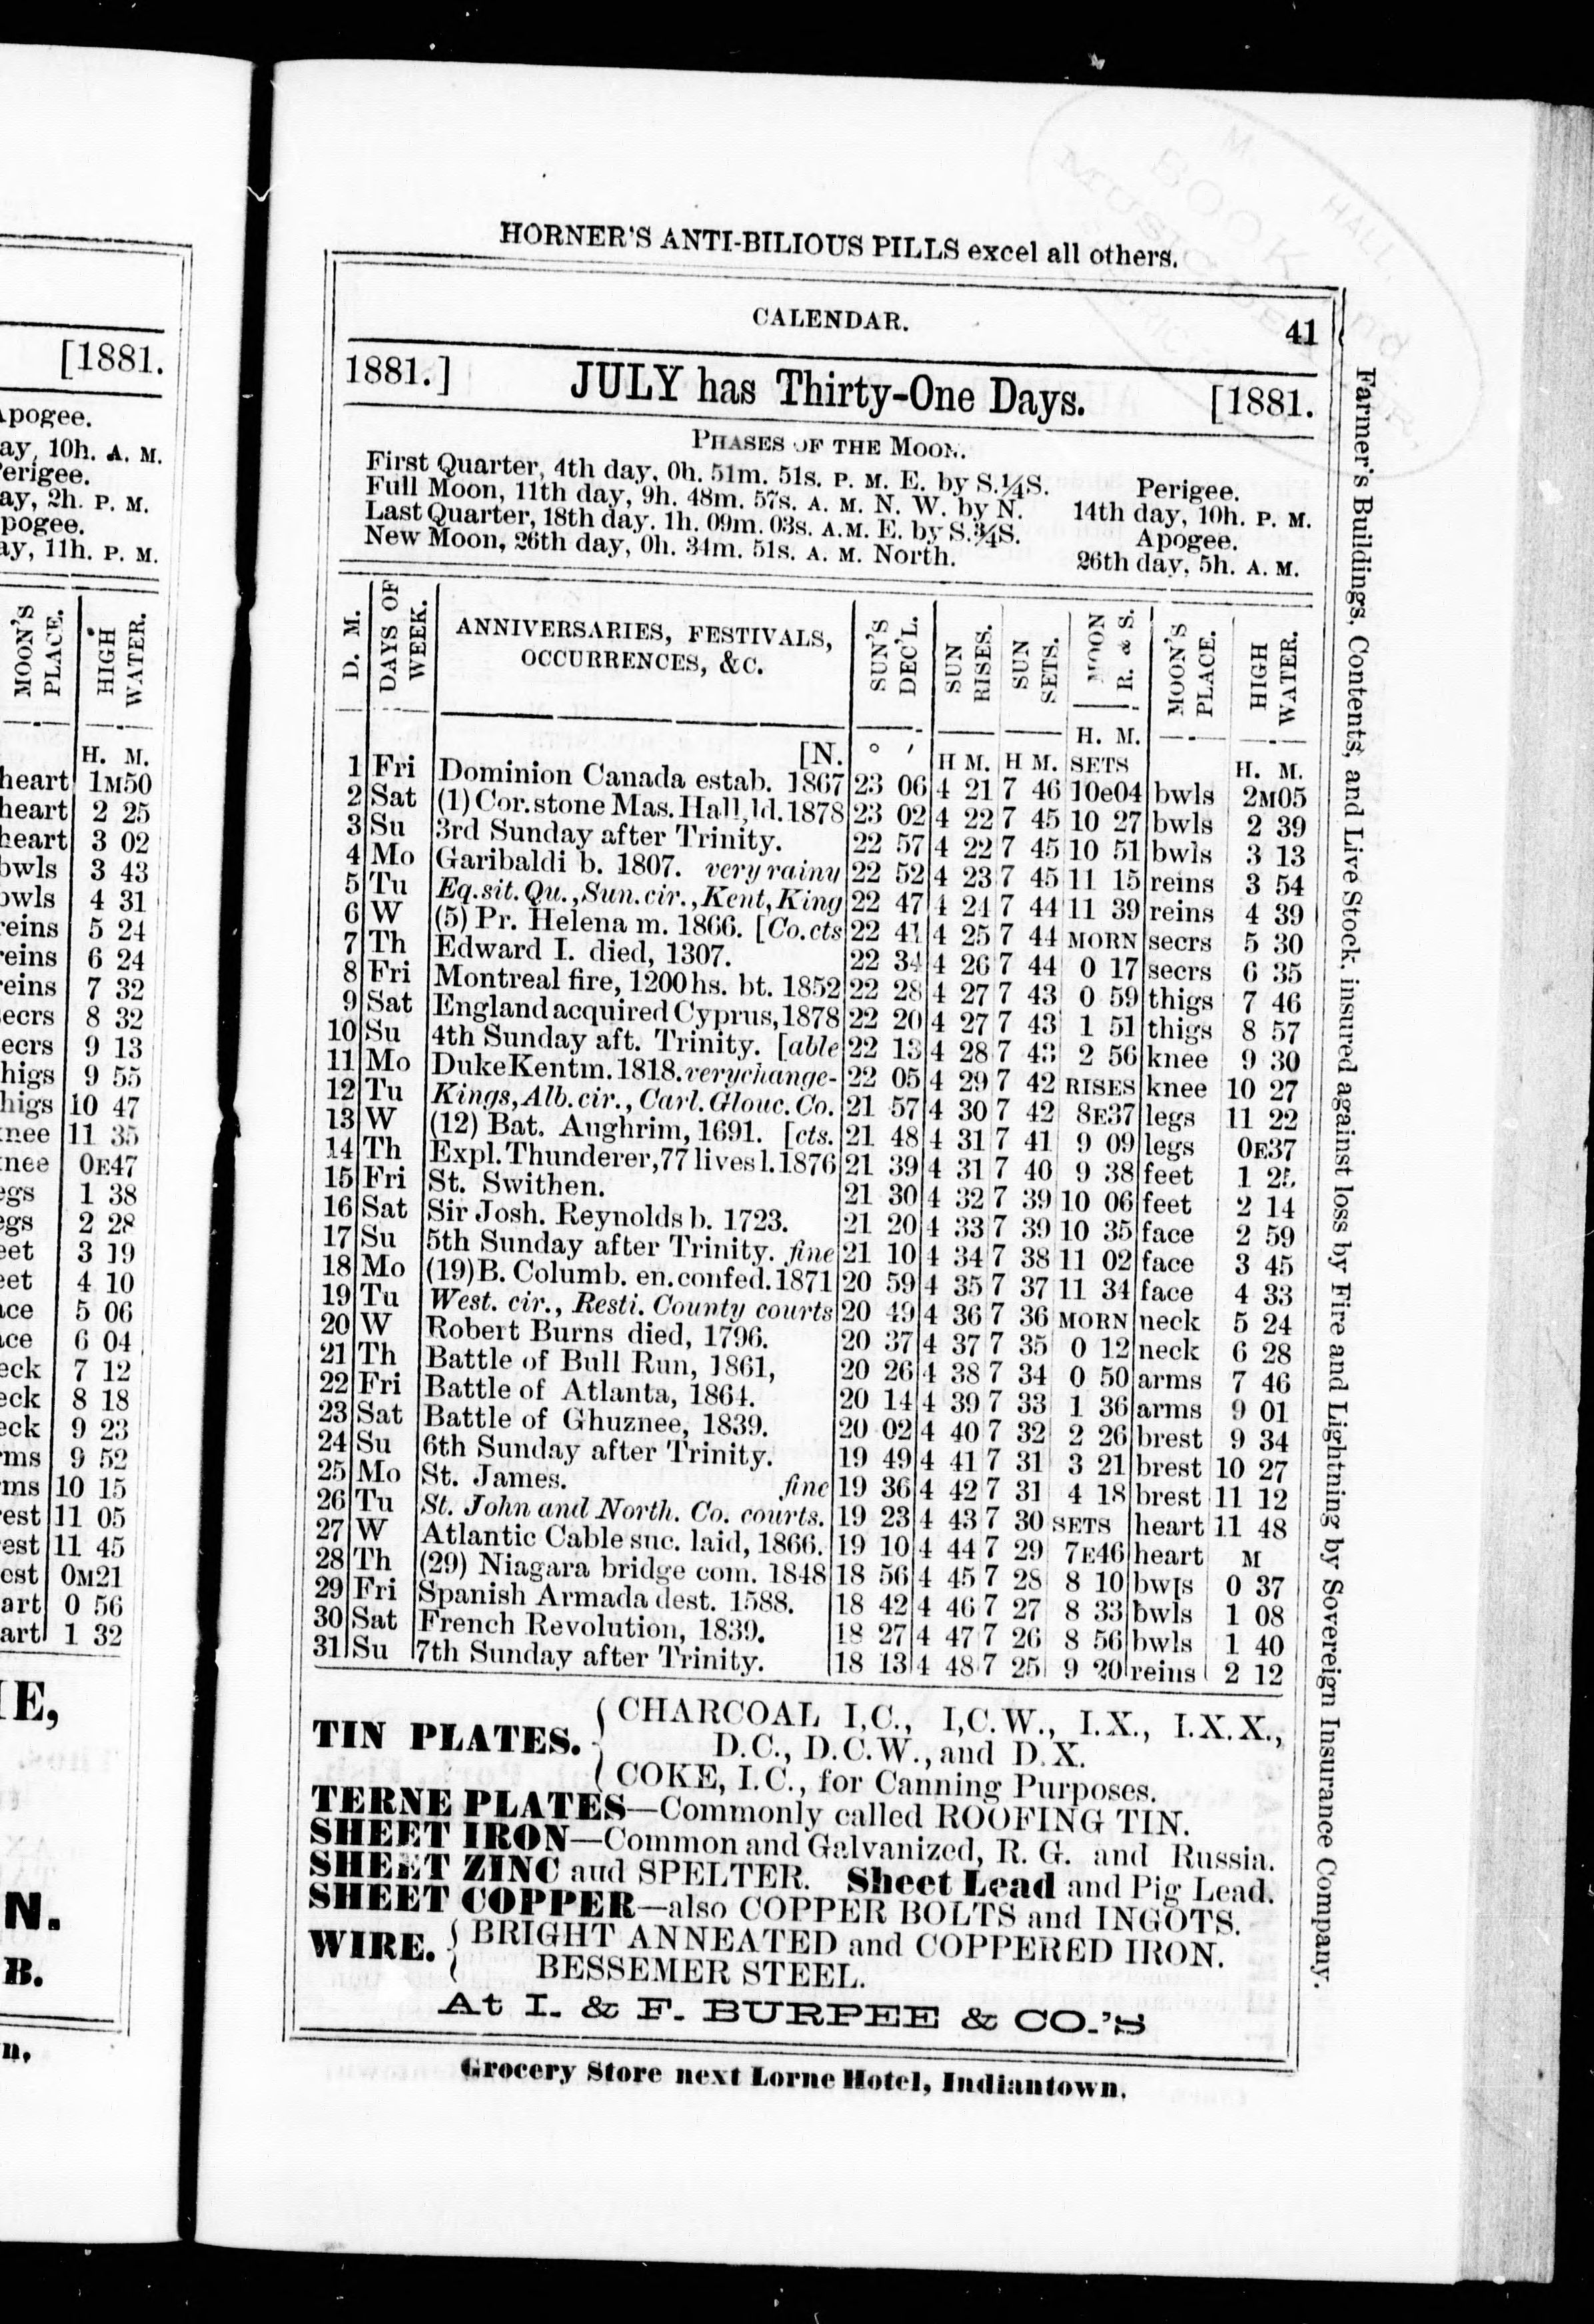 [1881.
Apogee.
ay, 10h. A. M.
erigee.
ay, 2h. P. M.
pogee.
ay, 11h. P. M.
MOON'S PLACE.
HIGH WATER.
H. M.
heart 1M50
heart 2 25
heart 3 02
bowls 3 43
bowls 4 31
reins 5 24
reins 6 24
reins 7 32
secrs 8 32
ecrs 9 13
higs 9 55
higs 10 47
knee 11 35
knee 0E47
egs 1 38
egs 2 28
eet 3 19
eet 4 10
ace 5 06
ace 6 04
eck 7 12
eck 8 18
eck 9 23
rms 9 52
rms 10 15
rest 11 05
est 11 45
est 0M21
art 0 56
art 1 32
E,
N.
B.
n,
HORNER'S ANTI-BILIOUS PILLS excel all others.
CALENDAR. 41
1881.] JULY has Thirty-One Days. [1881.
PHASES OF THE MOON.
First Quarter, 4th day, 0h. 51m. 51s. P. M. E. by S.¼S. Perigee.
Full Moon, 11th day, 9h. 48m. 57s. A. M. N. W. by N. 14th day, 10h. P. M.
Last Quarter, 18th day. 1h. 09m. 03s. A.M. E. by S.¾S. Apogee.
New Moon, 26th day, 0h. 34m. 51s. A. M. North. 26th day, 5h. A. M.
D. M. DAYS OF WEEK. ANNIVERSARIES, FESTIVALS, OCCURRENCES, &C. SUN'S DEC'L. SUN RISES. SUN SETS. MOON R. & S. MOON'S PLACE. HIGH WATER.
[N. ° ′ H M. H M. H. M. SETS H. M.
1 Fri Dominion Canada estab. 1867 23 06 4 21 7 46 10e04 bwls 2M05
2 Sat (1) Cor. stone Mas. Hall, ld. 1878 23 02 4 22 7 45 10 27 bwls 2 39
3 Su 3rd Sunday after Trinity. 22 57 4 22 7 45 10 51 bwls 3 13
4 Mo Garibaldi b. 1807. very rainy 22 52 4 23 7 45 11 15 reins 3 54
5 Tu Eq. sit. Qu., Sun. cir., Kent, King 22 47 4 24 7 44 11 39 reins 4 39
6 W (5) Pr. Helena m. 1866. [Co. cts 22 41 4 25 7 44 MORN secrs 5 30
7 Th Edward I. died, 1307. 22 34 4 26 7 44 0 17 secrs 6 35
8 Fri Montreal fire, 1200 hs. bt. 1852 22 28 4 27 7 43 0 59 thigs 7 46
9 Sat England acquired Cyprus, 1878 22 20 4 27 7 43 1 51 thigs 8 57
10 Su 4th Sunday aft. Trinity. [able 22 13 4 28 7 43 2 56 knee 9 30
11 Mo Duke Kent m. 1818. very change- 22 05 4 29 7 42 RISES knee 10 27
12 Tu Kings, Alb. cir., Carl. Glouc. Co. 21 57 4 30 7 42 8E37 legs 11 22
13 W (12) Bat. Aughrim, 1691. [cts. 21 48 4 31 7 41 9 09 legs 0E37
14 Th Expl. Thunderer, 77 lives l. 1876 21 39 4 31 7 40 9 38 feet 1 25
15 Fri St. Swithen. 21 30 4 32 7 39 10 06 feet 2 14
16 Sat Sir Josh. Reynolds b. 1723. 21 20 4 33 7 39 10 35 face 2 59
17 Su 5th Sunday after Trinity. fine 21 10 4 34 7 38 11 02 face 3 45
18 Mo (19) B. Columb. en. confed. 1871 20 59 4 35 7 37 11 34 face 4 33
19 Tu West. cir., Resti. County courts 20 49 4 36 7 36 MORN neck 5 24
20 W Robert Burns died, 1796. 20 37 4 37 7 35 0 12 neck 6 28
21 Th Battle of Bull Run, 1861, 20 26 4 38 7 34 0 50 arms 7 46
22 Fri Battle of Atlanta, 1864. 20 14 4 39 7 33 1 36 arms 9 01
23 Sat Battle of Ghuznee, 1839. 20 02 4 40 7 32 2 26 brest 9 34
24 Su 6th Sunday after Trinity. 19 49 4 41 7 31 3 21 brest 10 27
25 Mo St. James. fine 19 36 4 42 7 31 4 18 brest 11 12
26 Tu St. John and North. Co. courts. 19 23 4 43 7 30 SETS heart 11 48
27 W Atlantic Cable suc. laid, 1866. 19 10 4 44 7 29 7E46 heart M
28 Th (29) Niagara bridge com. 1848 18 56 4 45 7 28 8 10 bwls 0 37
29 Fri Spanish Armada dest. 1588. 18 42 4 46 7 27 8 33 bwls 1 08
30 Sat French Revolution, 1839. 18 27 4 47 7 26 8 56 bwls 1 40
31 Su 7th Sunday after Trinity. 18 13 4 48 7 25 9 20 reins 2 12
TIN PLATES. { CHARCOAL I,C., I,C.W., I.X., I.X.X.,
D.C., D.C.W., and D.X.
COKE, I.C., for Canning Purposes.
TERNE PLATES—Commonly called ROOFING TIN.
SHEET IRON—Common and Galvanized, R. G. and Russia.
SHEET ZINC and SPELTER. Sheet Lead and Pig Lead.
SHEET COPPER—also COPPER BOLTS and INGOTS.
WIRE. { BRIGHT ANNEATED and COPPERED IRON.
BESSEMER STEEL.
At I. & F. BURPEE & CO.'S
Grocery Store next Lorne Hotel, Indiantown.
Farmer's Buildings, Contents, and Live Stock, insured against loss by Fire and Lightning by Sovereign Insurance Company.
M. HALL,
BOOK and
MUSIC